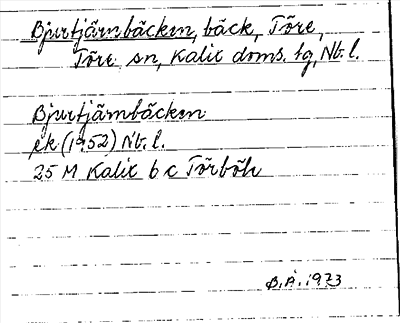 Bjurtjärnbäcken, bäck, Töre,
Töre sn, Kalix doms. tg, Nb. l.
Bjurtjärnbäcken
ek (1952) Nb. l.
25 M Kalix b c Törböle
B. Å. 1973